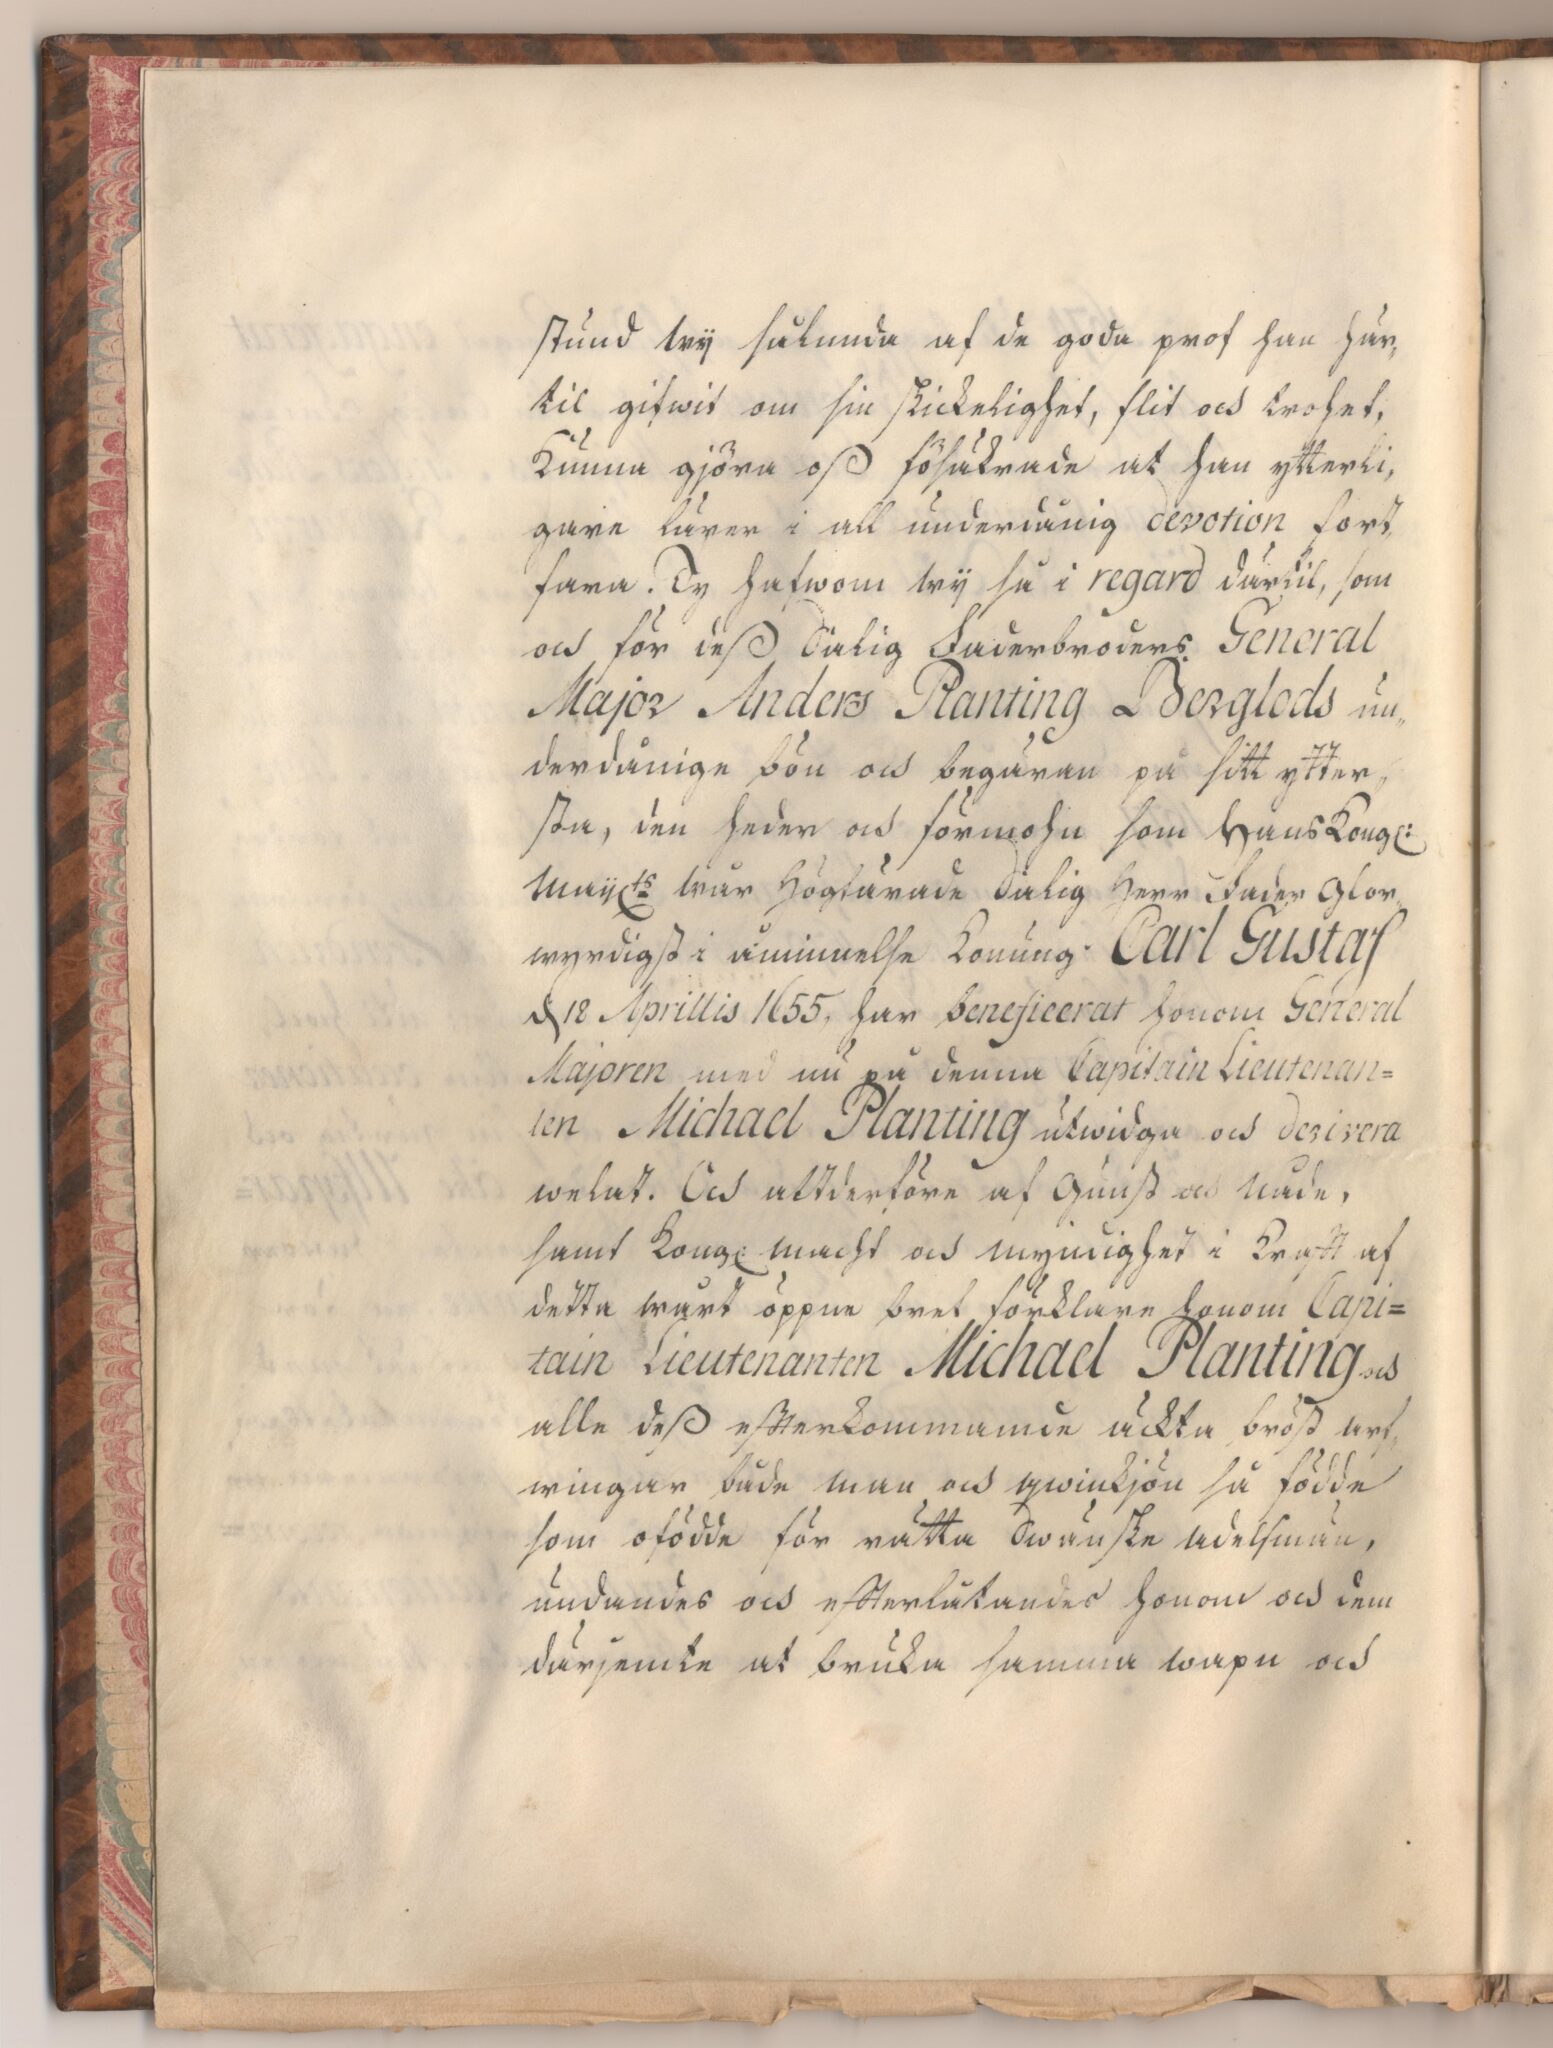 stund wÿ sålunda af de goda prof han här,
til gifwit om sin skickelighet, flit och trohet,
Kunna gjöra oß försäkrade at han ytterli,
gare lärer i all underdånig devotion fort,
fara. Ty hafwom wÿ så i regard därtil, som
och för deß Salig Faderbroders General
Major Anders Planting Berglods un,,
derdånige bön och begäran på sitt ytter,
sta, den heder och förmohn som Hans Kongl:
Maÿts wår Högtärade Salig Herr Fader Glor,
wyrdigst i åminnelse Konung Carl Gustaf
d 18 Aprillis 1655, har beneficerat honom General
Majoren med nu på denna Capitain Lieutenan=
ten Michael Planting utwidga och derivera
welat. Och altderföre af Gunst och Nåde,
samt Kongl macht och myndighet i Kraft af
detta wårt öppne bref förklare honom Capi=
tain Lieutenanten Michael Planting och
alle deß effterkommande ächta bröst arf,
wingar både man och qwinkjön så födde
som ofödde för rätta Swänske Adelsmän,
undandes och effterlåtandes honom och dem
därjemte at bruka samma wapn och